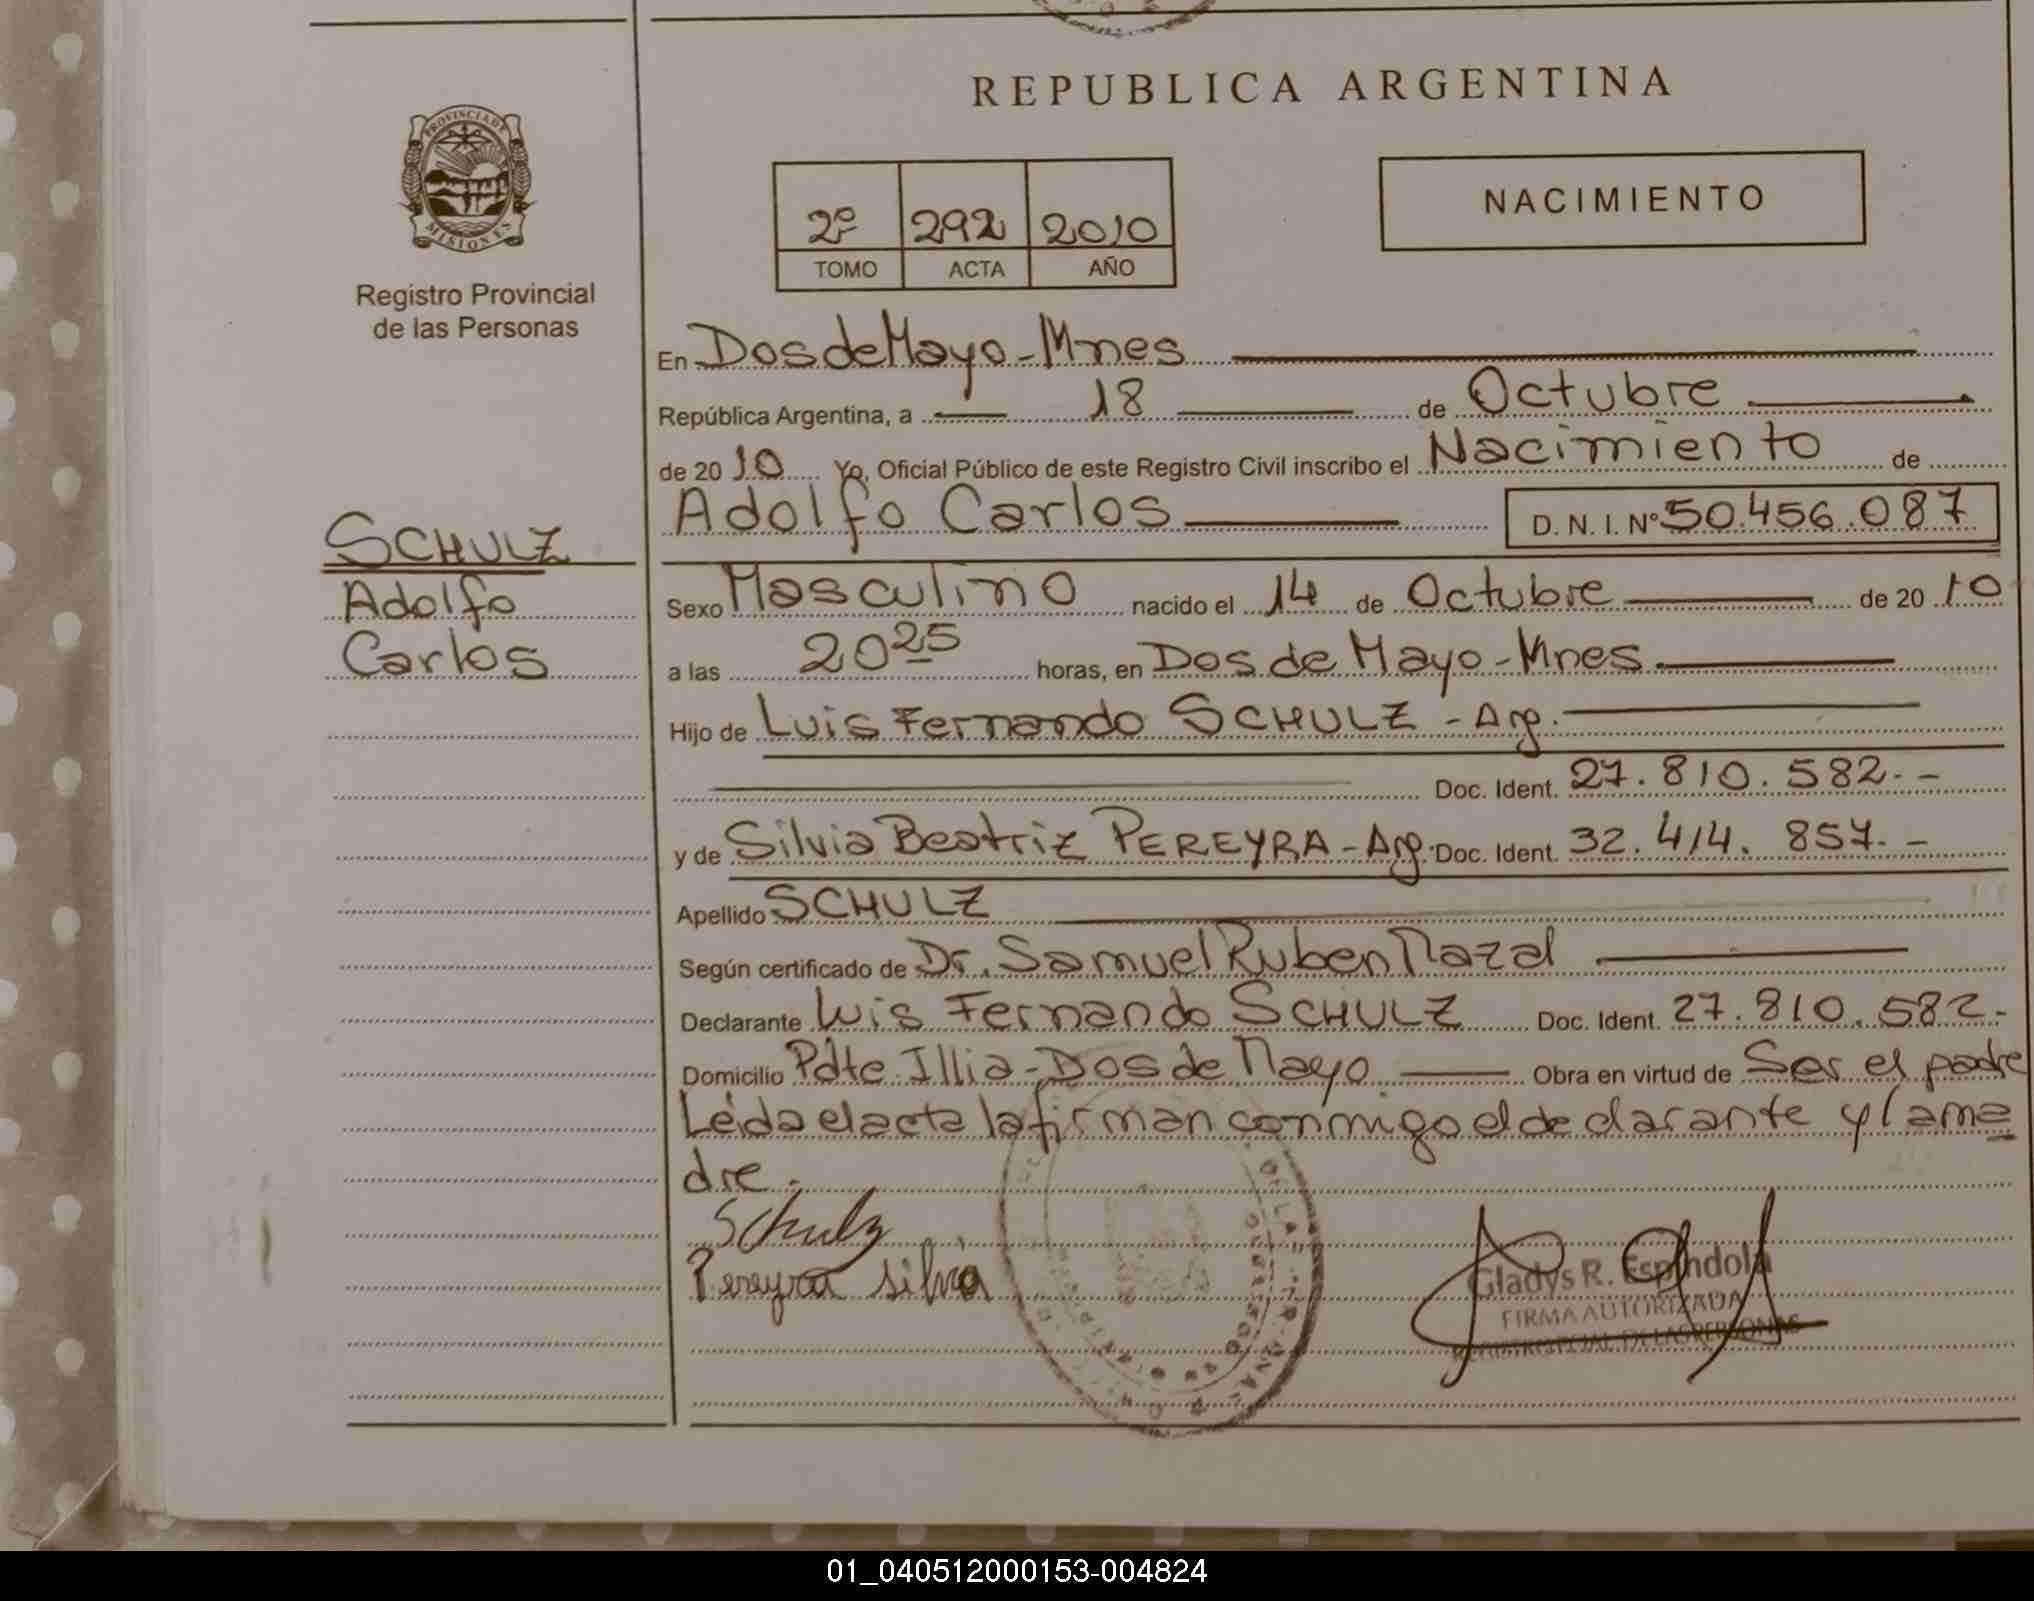 REPUBLICA ARGENTINA
PROVINCIA DE
MISIONES
Registro Provincial
de las Personas
2º 292 2010
TOMO ACTA AÑO
NACIMIENTO
En Dos de Mayo - Mnes
República Argentina, a 18 de Octubre
de 20 10 Yo, Oficial Público de este Registro Civil inscribo el Nacimiento de
Adolfo Carlos D. N. I. Nº 50.456.087
SCHULZ
Adolfo
Carlos
Sexo Masculino nacido el 14 de Octubre de 20 10
a las 20 25 horas, en Dos de Mayo - Mnes
Hijo de Luis Fernando SCHULZ - Arg.
Doc. Ident. 27.810.582.-
y de Silvia Beatriz PEREYRA - Arg. Doc. Ident. 32.414.857.-
Apellido SCHULZ
Según certificado de Dr. Samuel Ruben Nazal
Declarante Luis Fernando SCHULZ Doc. Ident. 27.810.582-
Domicilio Pdte Illia - Dos de Mayo Obra en virtud de Ser el padre
Leída el acta la firman conmigo el declarante y la ma
dre.
Schulz
Pereyra Silvia
Gladys R. Espindola
FIRMA AUTORIZADA
DE LAS PERSONAS
01_040512000153-004824